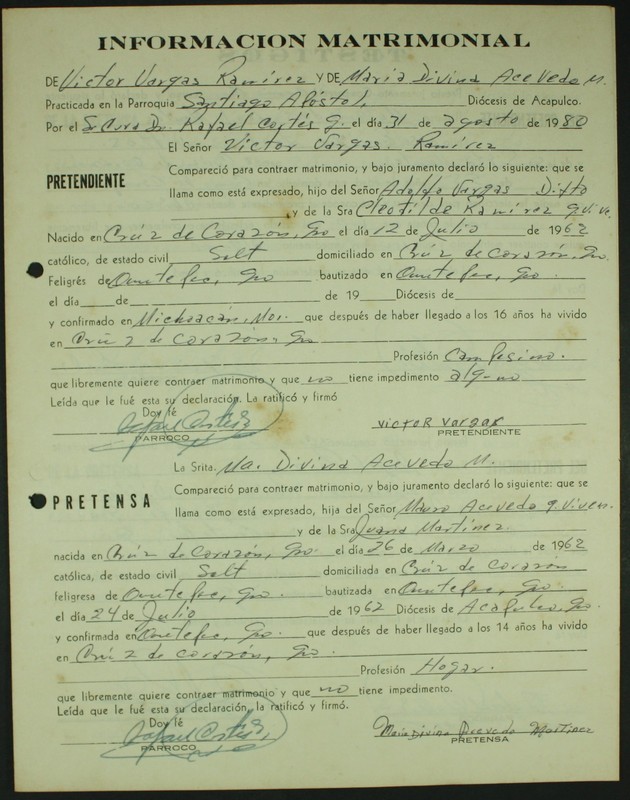 INFORMACION MATRIMONIAL
DE Victor Vargas Ramírez Y DE Maria Divina Acevedo M.
Practicada en la Parroquia Santiago Apóstol, Diócesis de Acapulco.
Por el Sr Cura Dn. Rafael Cortés G. el día 31 de agosto de 1980
El Señor Victor Vargas Ramírez
PRETENDIENTE
Compareció para contraer matrimonio, y bajo juramento declaró lo siguiente: que se
llama como está expresado, hijo del Señor Adolfo Vargas Difto
y de la Sra Cleotilde Ramírez q. vive.
Nacido en Crúz de Corazón, Gro el día 12 de Julio de 1962
católico, de estado civil Solt domiciliado en Crúz de corazón, Gro.
Feligrés de Ometepec, Gro bautizado en Ometepec, Gro.
el día de de 19 Diócesis de
y confirmado en Michoacán, Mor. que después de haber llegado a los 16 años ha vivido
en Crúz de corazón, Gro
Profesión Campesino.
que libremente quiere contraer matrimonio y que no tiene impedimento alg-no
Leída que le fué esta su declaración. La ratificó y firmó
Doy fé
Rafael Cortés G.
VICTOR VARGAS
PARROCO
PRETENDIENTE
La Srita. Ma. Divina Acevedo M.
PRETENSA
Compareció para contraer matrimonio, y bajo juramento declaró lo siguiente: que se
llama como está expresado, hija del Señor Mauro Acevedo q. viven.
y de la Sra Juana Martínez.
nacida en Crúz de Corazón, Gro. el día 26 de Marzo de 1962
católica, de estado civil Solt domiciliada en Crúz de corazon
feligresa de Ometepec, Gro. bautizada en Ometepec, Gro
el día 24 de Julio de 1962 Diócesis de Acapulco, Gro.
y confirmada en Ometepec, Gro. que después de haber llegado a los 14 años ha vivido
en Crúz de corazón, Gro.
Profesión Hogar.
que libremente quiere contraer matrimonio y que no tiene impedimento.
Leída que le fué su declaración, la ratificó y firmó.
Doy fé
Rafael Cortés G.
Maria Divina Acevedo Martinez
PARROCO
PRETENSA